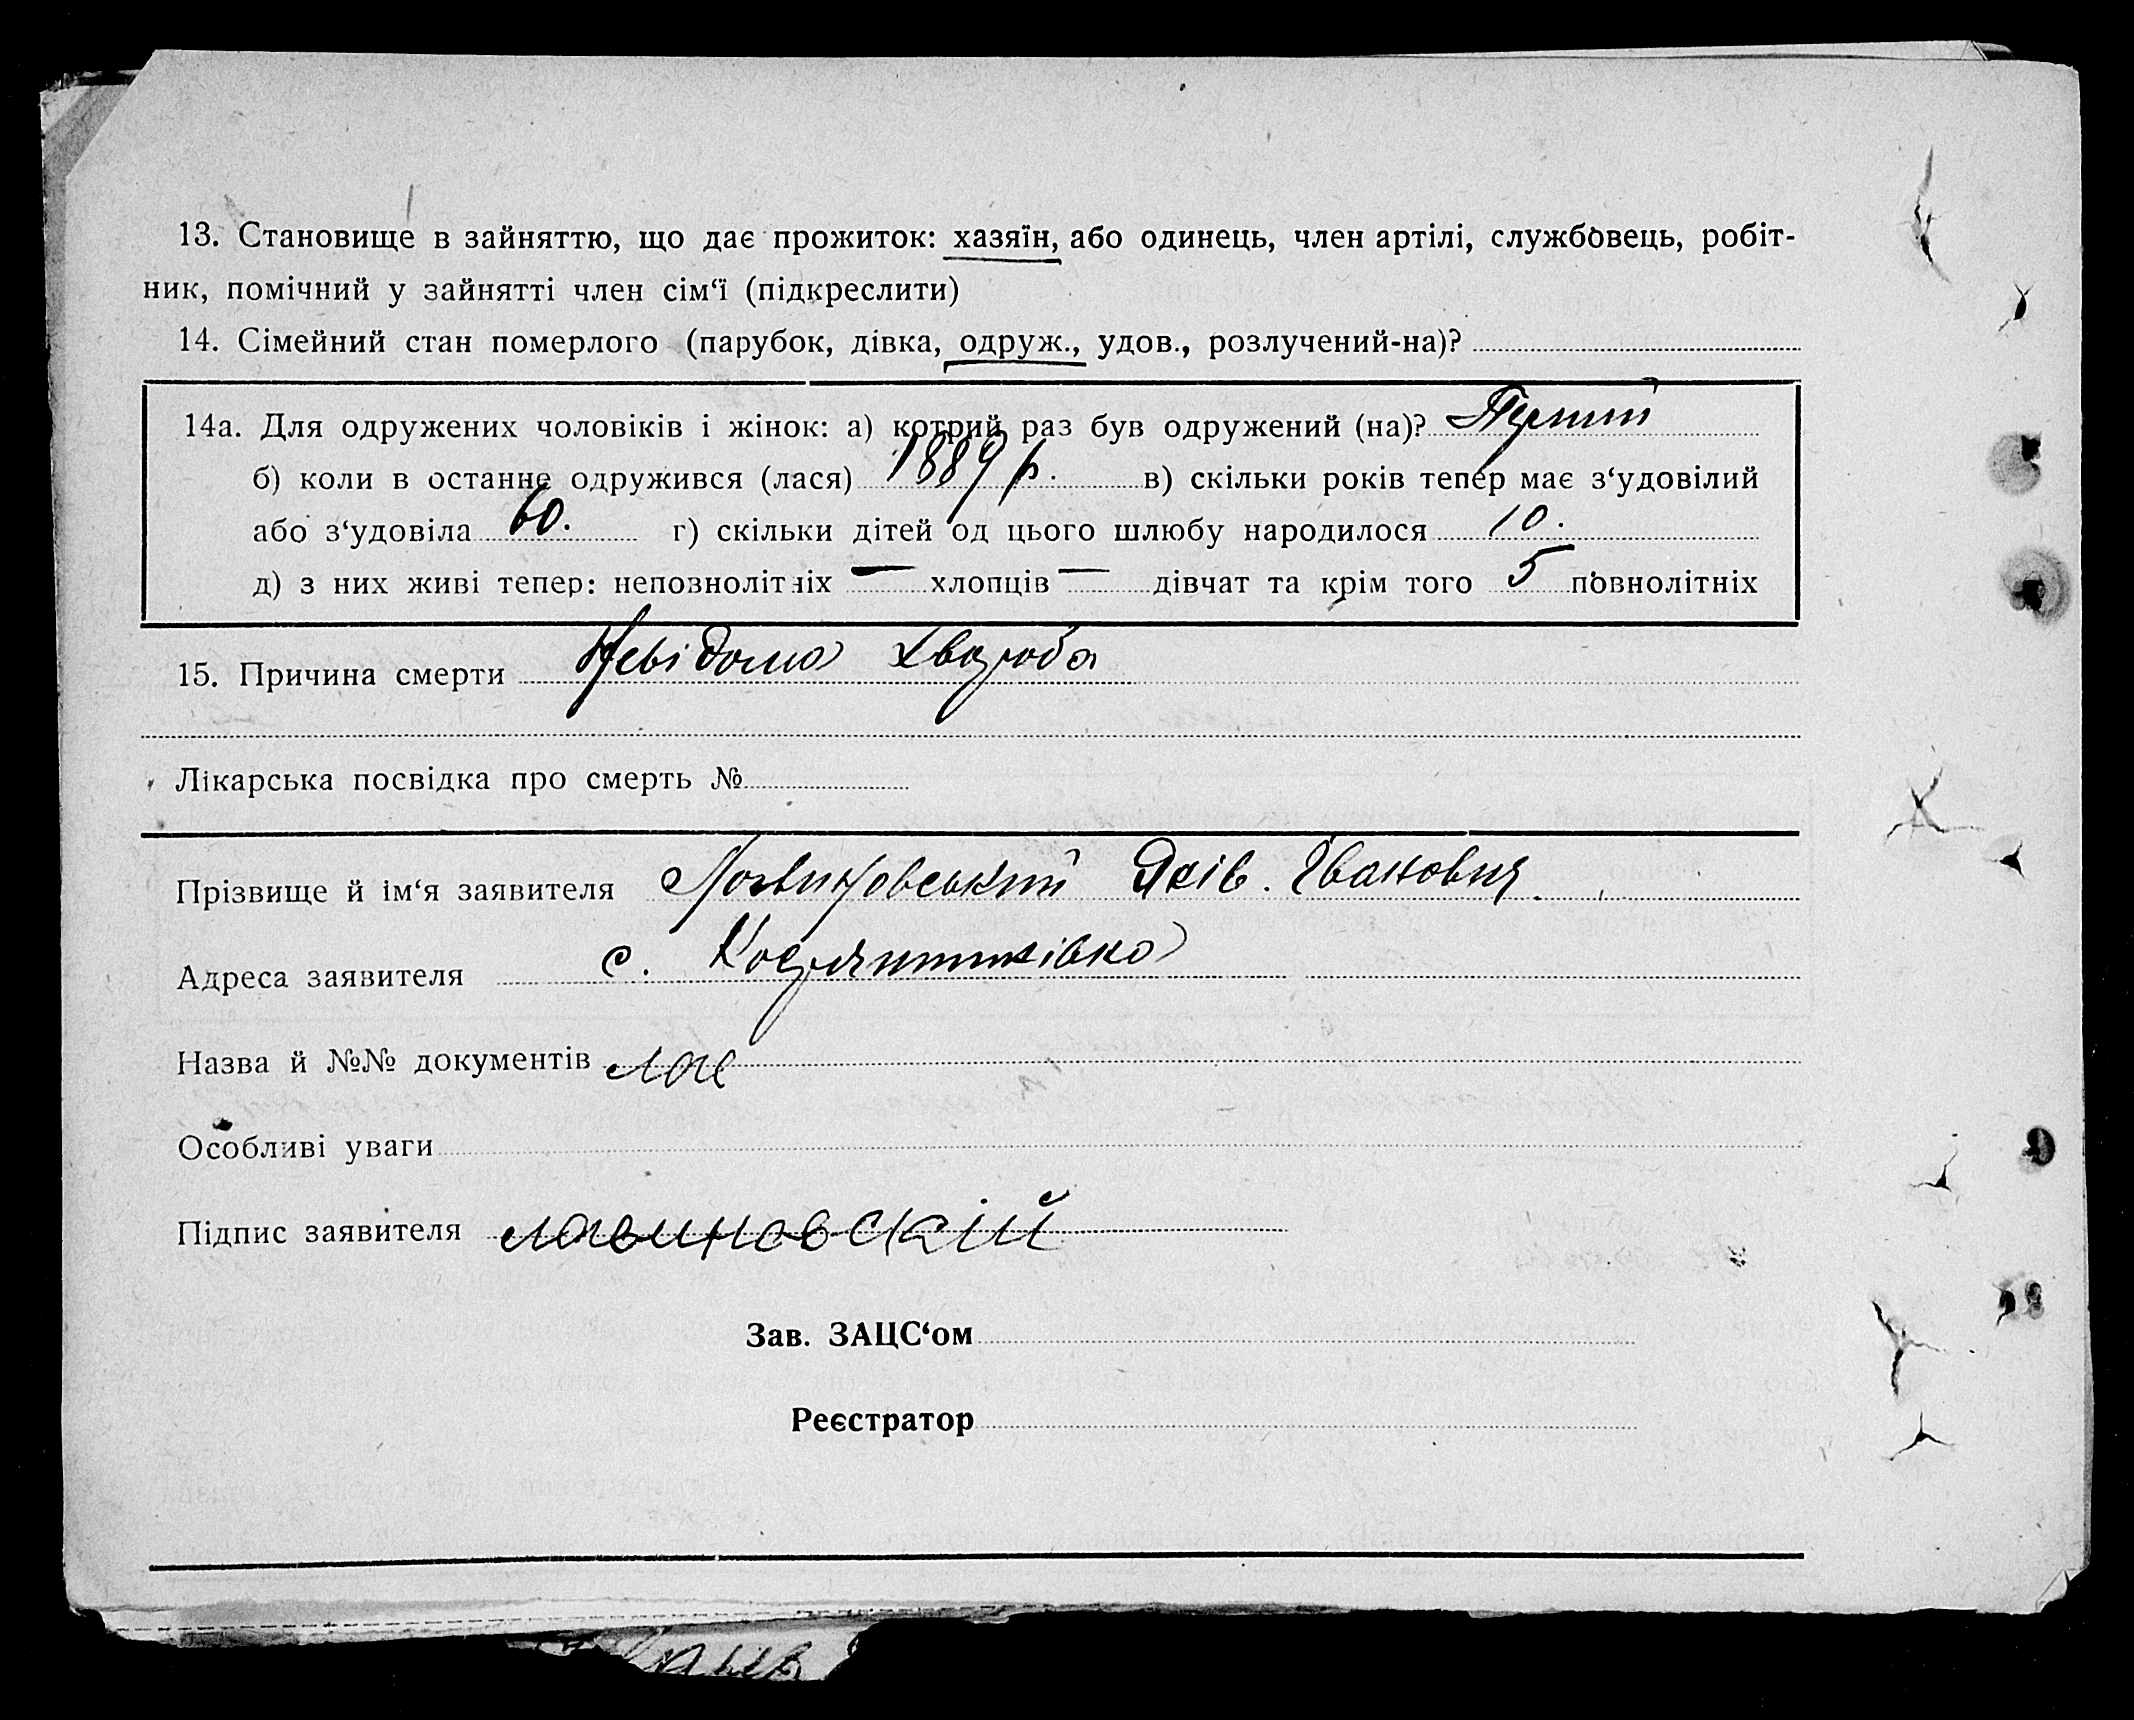 13. Становище в зайняттю, що дає прожиток: хазяїн, або одинець, член артілі, службовець, робіт-
ник, помічний у зайнятті член сім‘ї (підкреслити)
14. Сімейний стан померлого (парубок, дівка, одруж., удов., розлучений-на)?
14а. Для одружених чоловіків і жінок: а) котрий раз був одружений (на)? Перший
б) коли в останнє одружився (лася) 1889 р. в) скільки років тепер має з‘удовілий
або з‘удовіла 60. г) скільки дітей од цього шлюбу народилося 10.
д) з них живі тепер: неповнолітніх — хлопців — дівчат та крім того 5 повнолітніх
15. Причина смерти Невідома Хвороба
Лікарська посвідка про смерть №
Прізвище й ім‘я заявителя Логвиновський Яків. Іванович.
Адреса заявителя с.
Назва й №№ документів
Особливі уваги
Підпис заявителя логвиновскій
Зав. ЗАЦС‘ом
Реєстратор